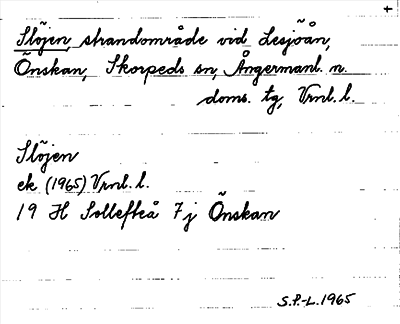 Slöjen, strandområde vid Lesjöån,
Önskan, Skorpeds sn, Ångermanl. n.
doms. tg, Vrnl. l.
Slöjen
ek (1965) Vrnl. l.
19 H Sollefteå 7j Önskan
S.P.-L. 1965